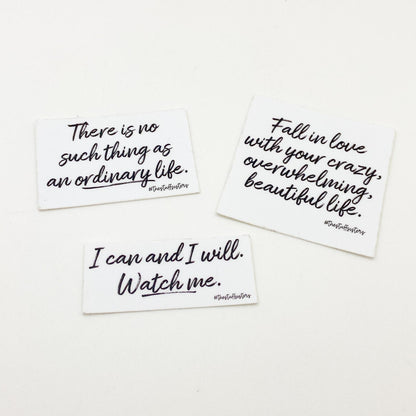 There is no
such thing as
an ordinary life.
Fall in love
with your crazy,
overwhelming,
beautiful life.
I can and I will.
Watch me.